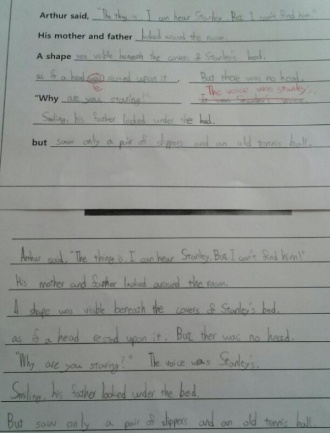 Arthur said, "The thing is I can hear Stanley. But I can't find him!"
His mother and father looked around the room.
A shape was visible beneath the covers of Stanley's bed.
as if a head upon it. But there was no head.
The voice was Stanley's.
"Why are you staring?"
Smiling, his father looked under the bed.
but saw only a pair of slippers and an old tennis ball.
Arthur said, "The thing is I can hear Stanley. But I can't find him!"
His mother and father looked around the room.
A shape was visible beneath the covers of Stanley's bed.
as if a head upon it. But ther was no head.
"Why are you staring?" The voice was Stanley's.
Smiling, his father looked under the bed.
But saw only a pair of slippers and an old tennis ball.